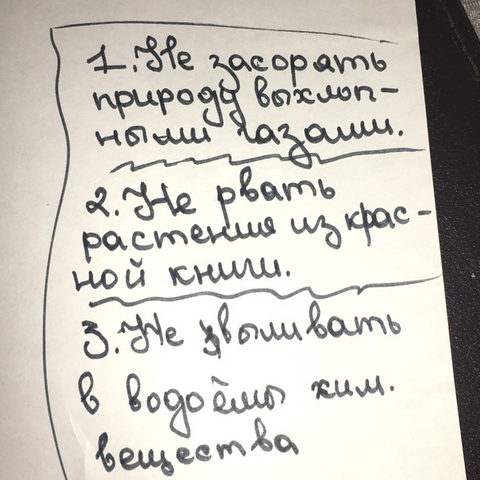 1. Не засорять
природу выхлоп-
ными газами.
2. Не рвать
растения из крас-
ной книги.
3. Не выливать
в водоёмы хим.
вещества